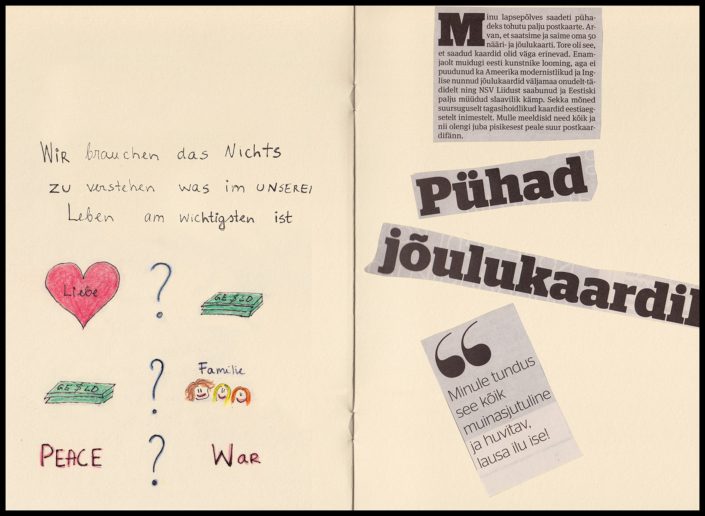 Wir brauchen das Nichts
zu verstehen was im UNSEREI
Leben am wichtigsten ist
Liebe ? GE$LD
GE$LD ? Familie
PEACE ? WaR
Minu lapsepõlves saadeti püha-
deks tohutu palju postkaarte. Ar-
van, et saatsime ja saime oma 50
nääri- ja jõulukaarti. Tore oli see,
et saadud kaardid olid väga erinevad. Enam-
jaolt muidugi eesti kunstnike looming, aga ei
puudunud ka Ameerika modernistlikud ja Ing-
lise nunnud jõulukaardid väljamaa onudelt-tä-
didelt ning NSV Liidust saabunud ja Eestiski
palju müüdud slaavilik kämp. Sekka mõned
suursuguselt tagasihoidlikud kaardid eestiaeg-
setelt inimestelt. Mulle meeldisid need kõik ja
nii olengi juba pisikesest peale suur postkaar-
difänn.
Pühad
jõulukaardil
“
Minule tundus
see kõik
muinasjutuline
ja huvitav,
lausa ilu ise!